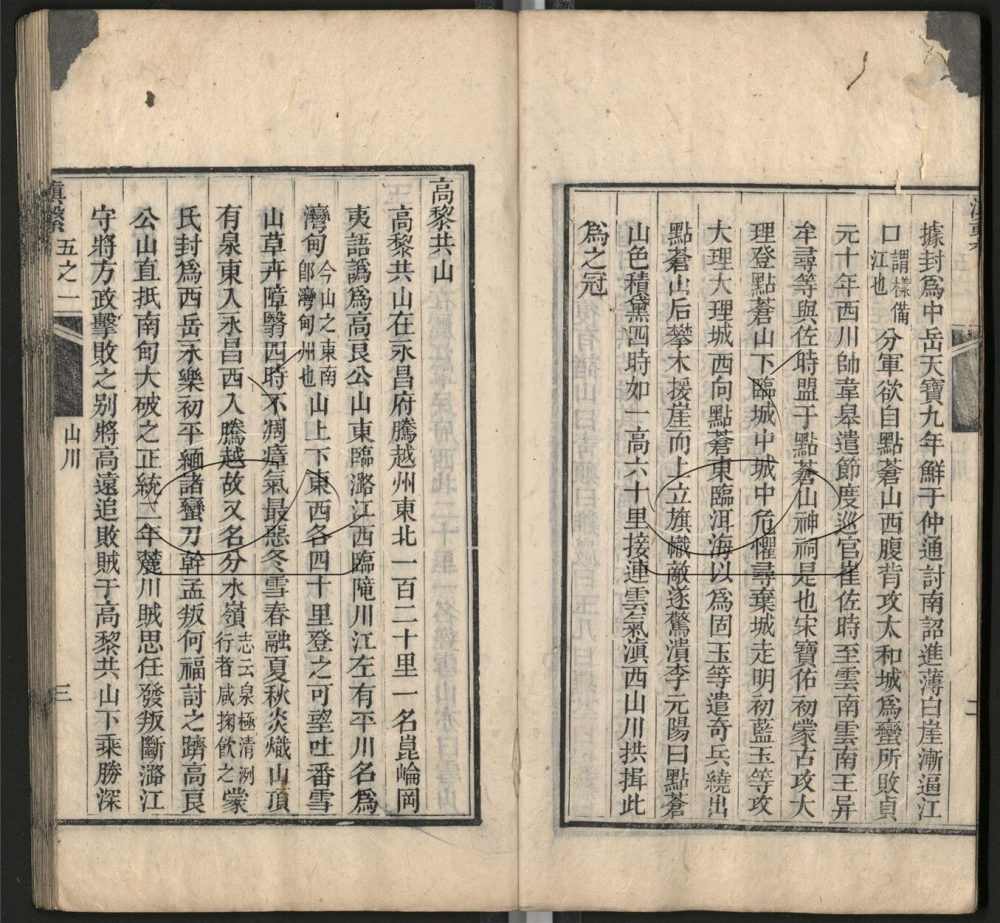 據封爲中岳天寶九年鮮于仲通討南詔進薄白崖漸逼江
口謂樣備江也分軍欲自點蒼山西腹背攻太和城爲蠻所敗貞
元十年西川帥韋皋遣節度巡官崔佐時至雲南雲南王异
牟尋等與佐時盟于點蒼山神祠是也宋寶佑初蒙古攻大
理登點蒼山下臨城中城中危懼尋棄城走明初藍玉等攻
大理大理城西向點蒼東臨洱海以爲固玉等遣奇兵繞出
點蒼山后攀木援崖而上立旗幟敵遂驚潰李元陽曰點蒼
山色積黛四時如一高六十里接連雲氣滇西山川拱揖此
爲之冠
二
高黎共山
高黎共山在永昌府騰越州東北一百二十里一名崑崙岡
夷語譌爲高良公山東臨潞江西臨隴川江左有平川名爲
灣甸今山之東南卽灣甸州也山上下東西各四十里登之可望吐番雪
山草卉障翳四時不凋瘴氣最惡冬雪春融夏秋炎熾山頂
有泉東入永昌西入騰越故又名分水嶺志云泉極清冽行者咸掬飲之蒙
氏封爲西岳永樂初平緬諸蠻刀幹孟叛何福討之躋高良
公山直抵南甸大破之正統二年麓川賊思任發叛斷潞江
守將方政擊敗之別將高遠追敗賊于高黎共山下乘勝深
滇繫 五之一 山川 三